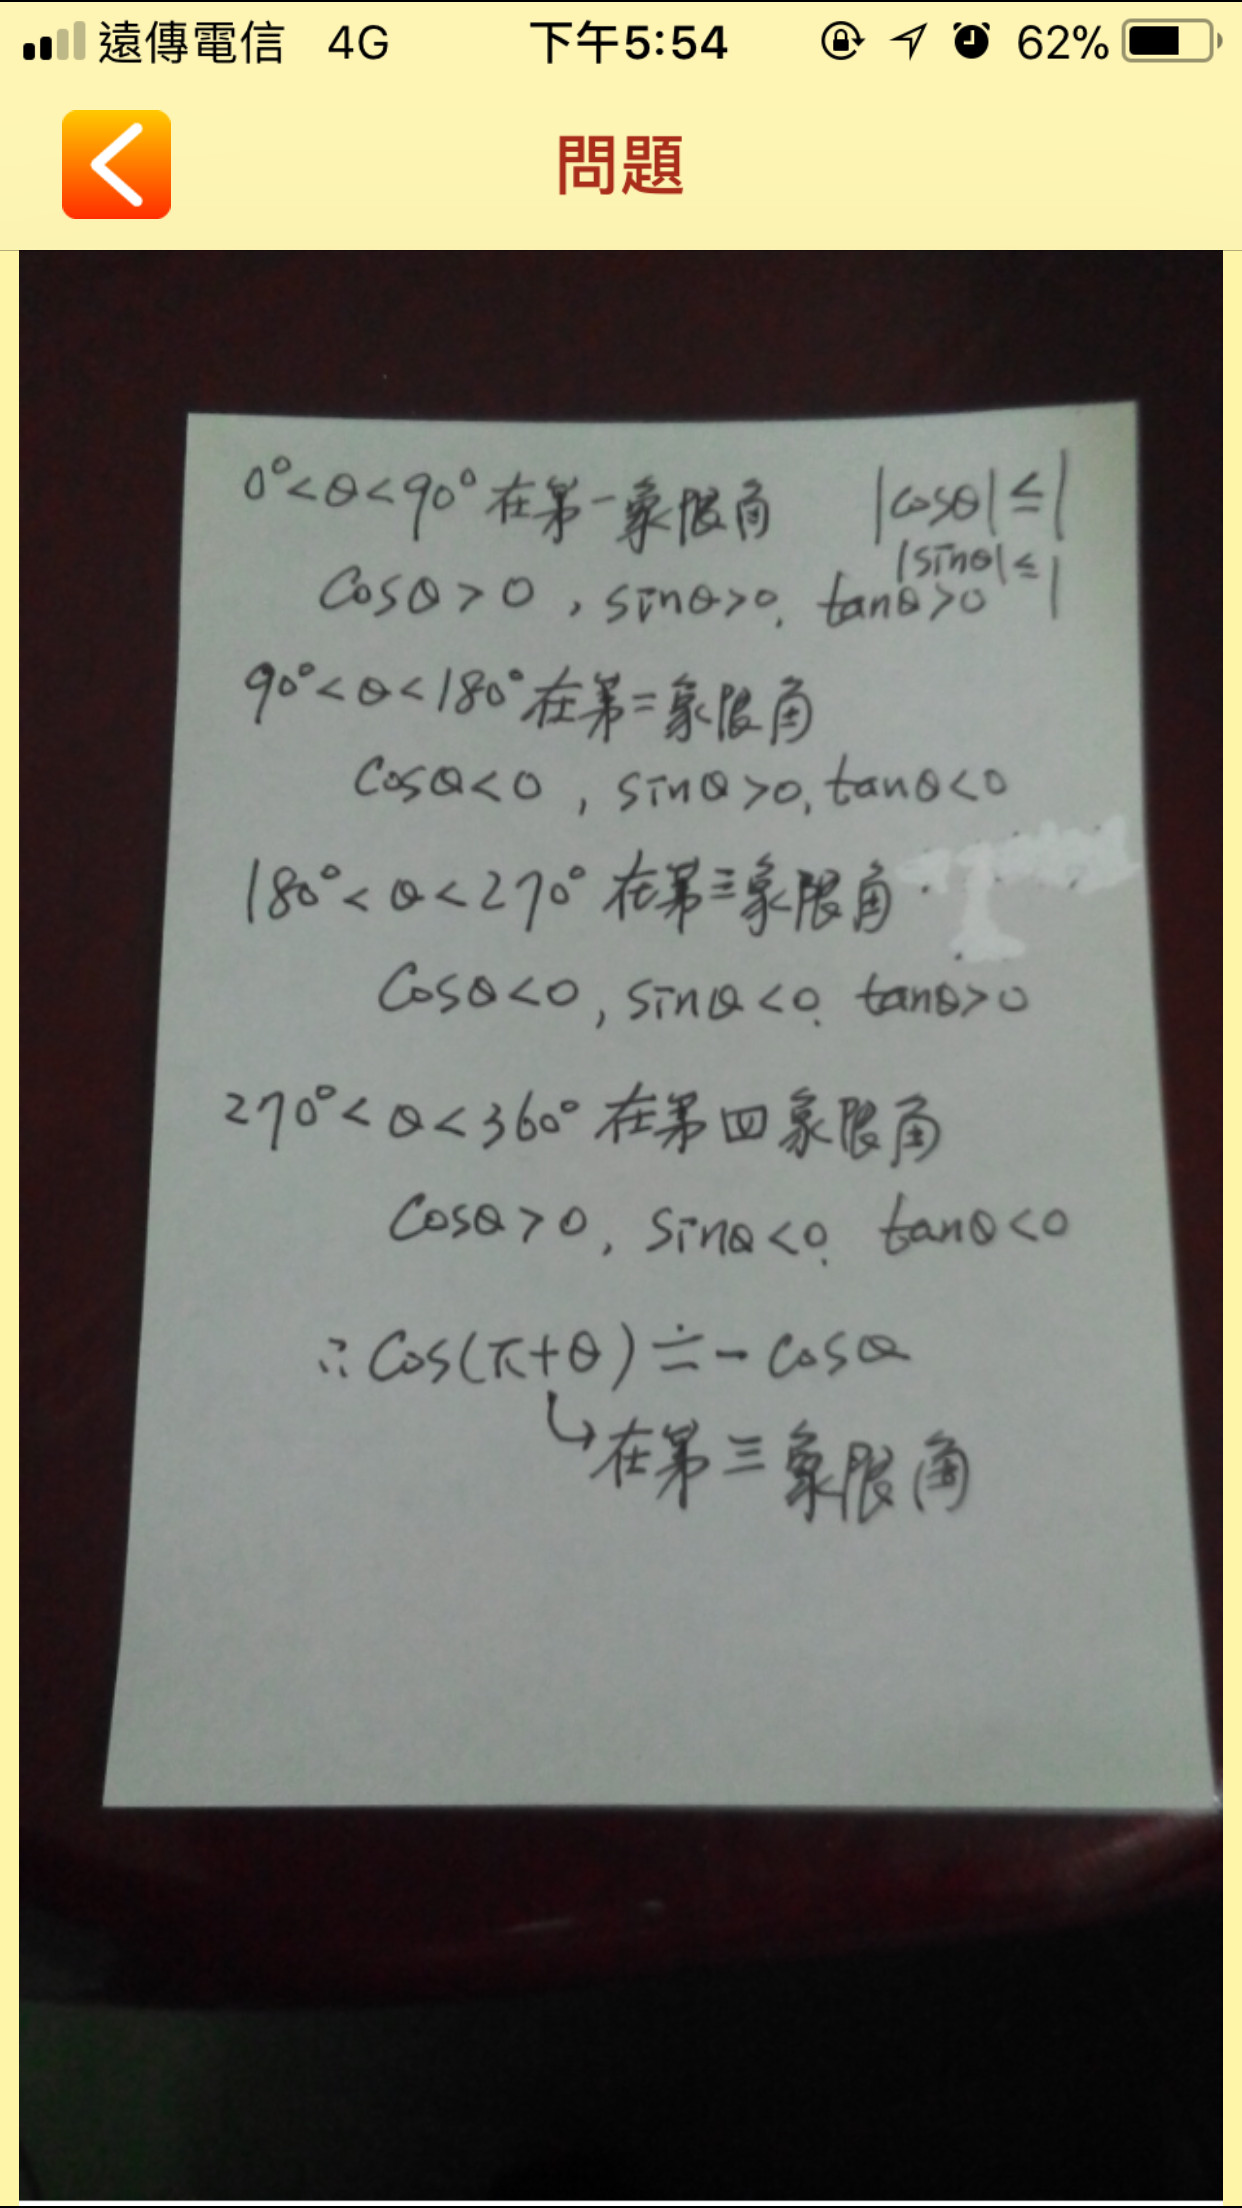 遠傳電信 4G 下午5:54 62%
問題
0°<θ<90° 在第一象限角 |cosθ|≤1
|sinθ|≤1
cosθ>0, sinθ>0, tanθ>0
90°<θ<180° 在第二象限角
cosθ<0, sinθ>0, tanθ<0
180°<θ<270° 在第三象限角
cosθ<0, sinθ<0, tanθ>0
270°<θ<360° 在第四象限角
cosθ>0, sinθ<0, tanθ<0
∴cos(π+θ)=-cosθ
↳在第三象限角